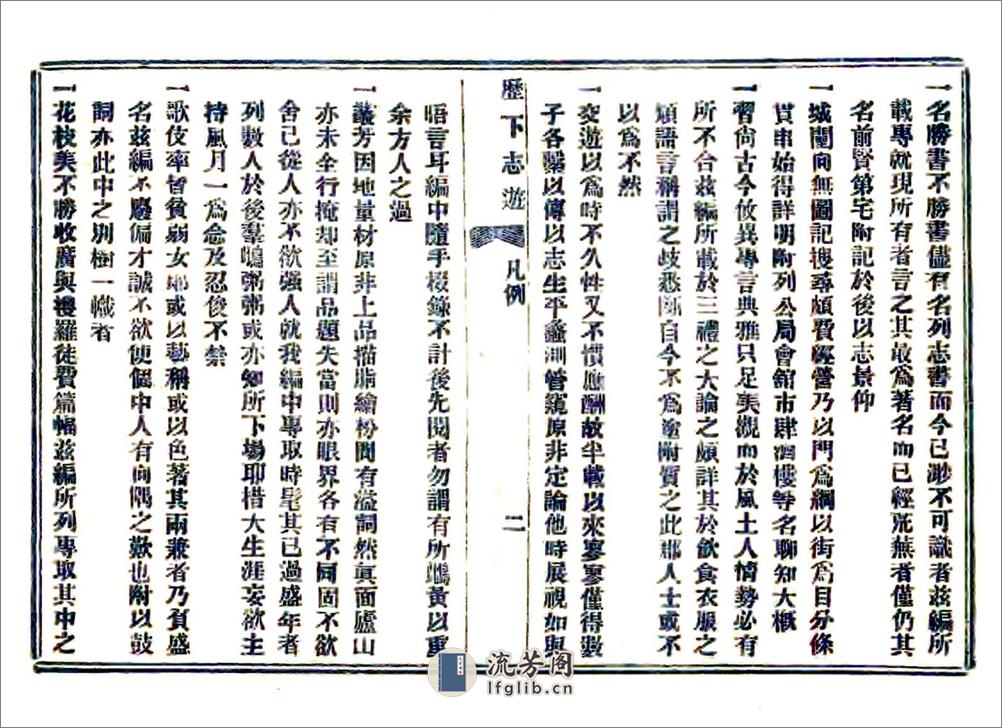 一名勝書不勝書儘有名列志書而今已渺不可識者玆編所
載專就現所有者言之其最爲著名而已經荒蕪者僅仍其
名前賢第宅附記於後以志景仰
一城闉向無圖記搜尋頗費經營乃以門爲綱以街爲目分條
貫串始得詳明附列公局會舘市肆酒樓等名聊知大槪
一習尙古今攸異專言典雅只足美觀而於風土人情勢必有
所不合玆編所載於三禮之大論之頗詳其於飮食衣服之
類語言稱謂之歧悉斷自今不爲塗附質之此邦人士或不
以爲不然
一交遊以爲時不久性又不慣應酬故半載以來寥寥僅得數
子各繫以傳以志生平蠡測管窺原非定論他時展視如與
歷下志遊 凡例 二
晤言耳編中隨手掇錄不計後先閱者勿謂有所雌黃以重
余方人之過
一叢芳因地量材原非上品描脂繪粉間有溢詞然眞面廬山
亦未全行掩却至謂品題失當則亦眼界各有不同固不欲
舍己從人亦不欲强人就我編中專取時髦其已過盛年者
列數人於後羣鴟粥粥或亦知所下場耶惜大生涯妄欲主
持風月一爲念及忍俊不禁
一歌伎率皆貧弱女郞或以藝稱或以色著其兩兼者乃負盛
名玆編不廢偏才誠不欲使個中人有向隅之歎也附以鼓
詞亦此中之別樹一幟者
一花枝美不勝收廣與搜羅徒費篇幅玆編所列專取其中之
流芳阁
lfglib.cn